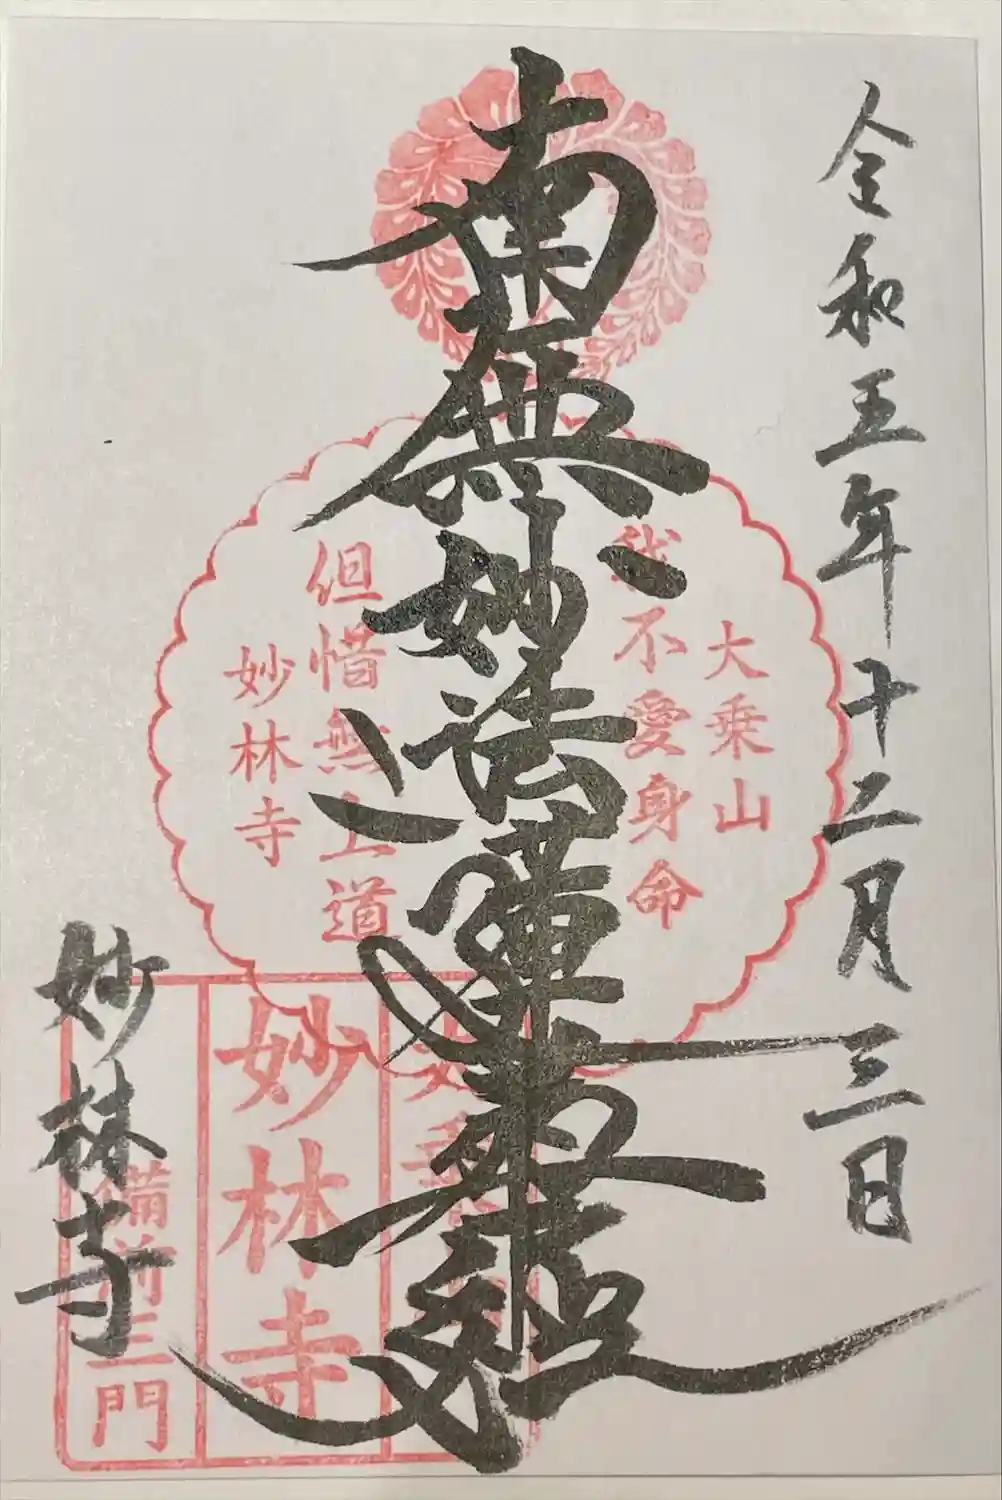 令和五年十二月三日
南無妙法蓮華経
大乗山
我不愛身命
但惜無上道
妙林寺
妙林寺
備前三門
妙林寺